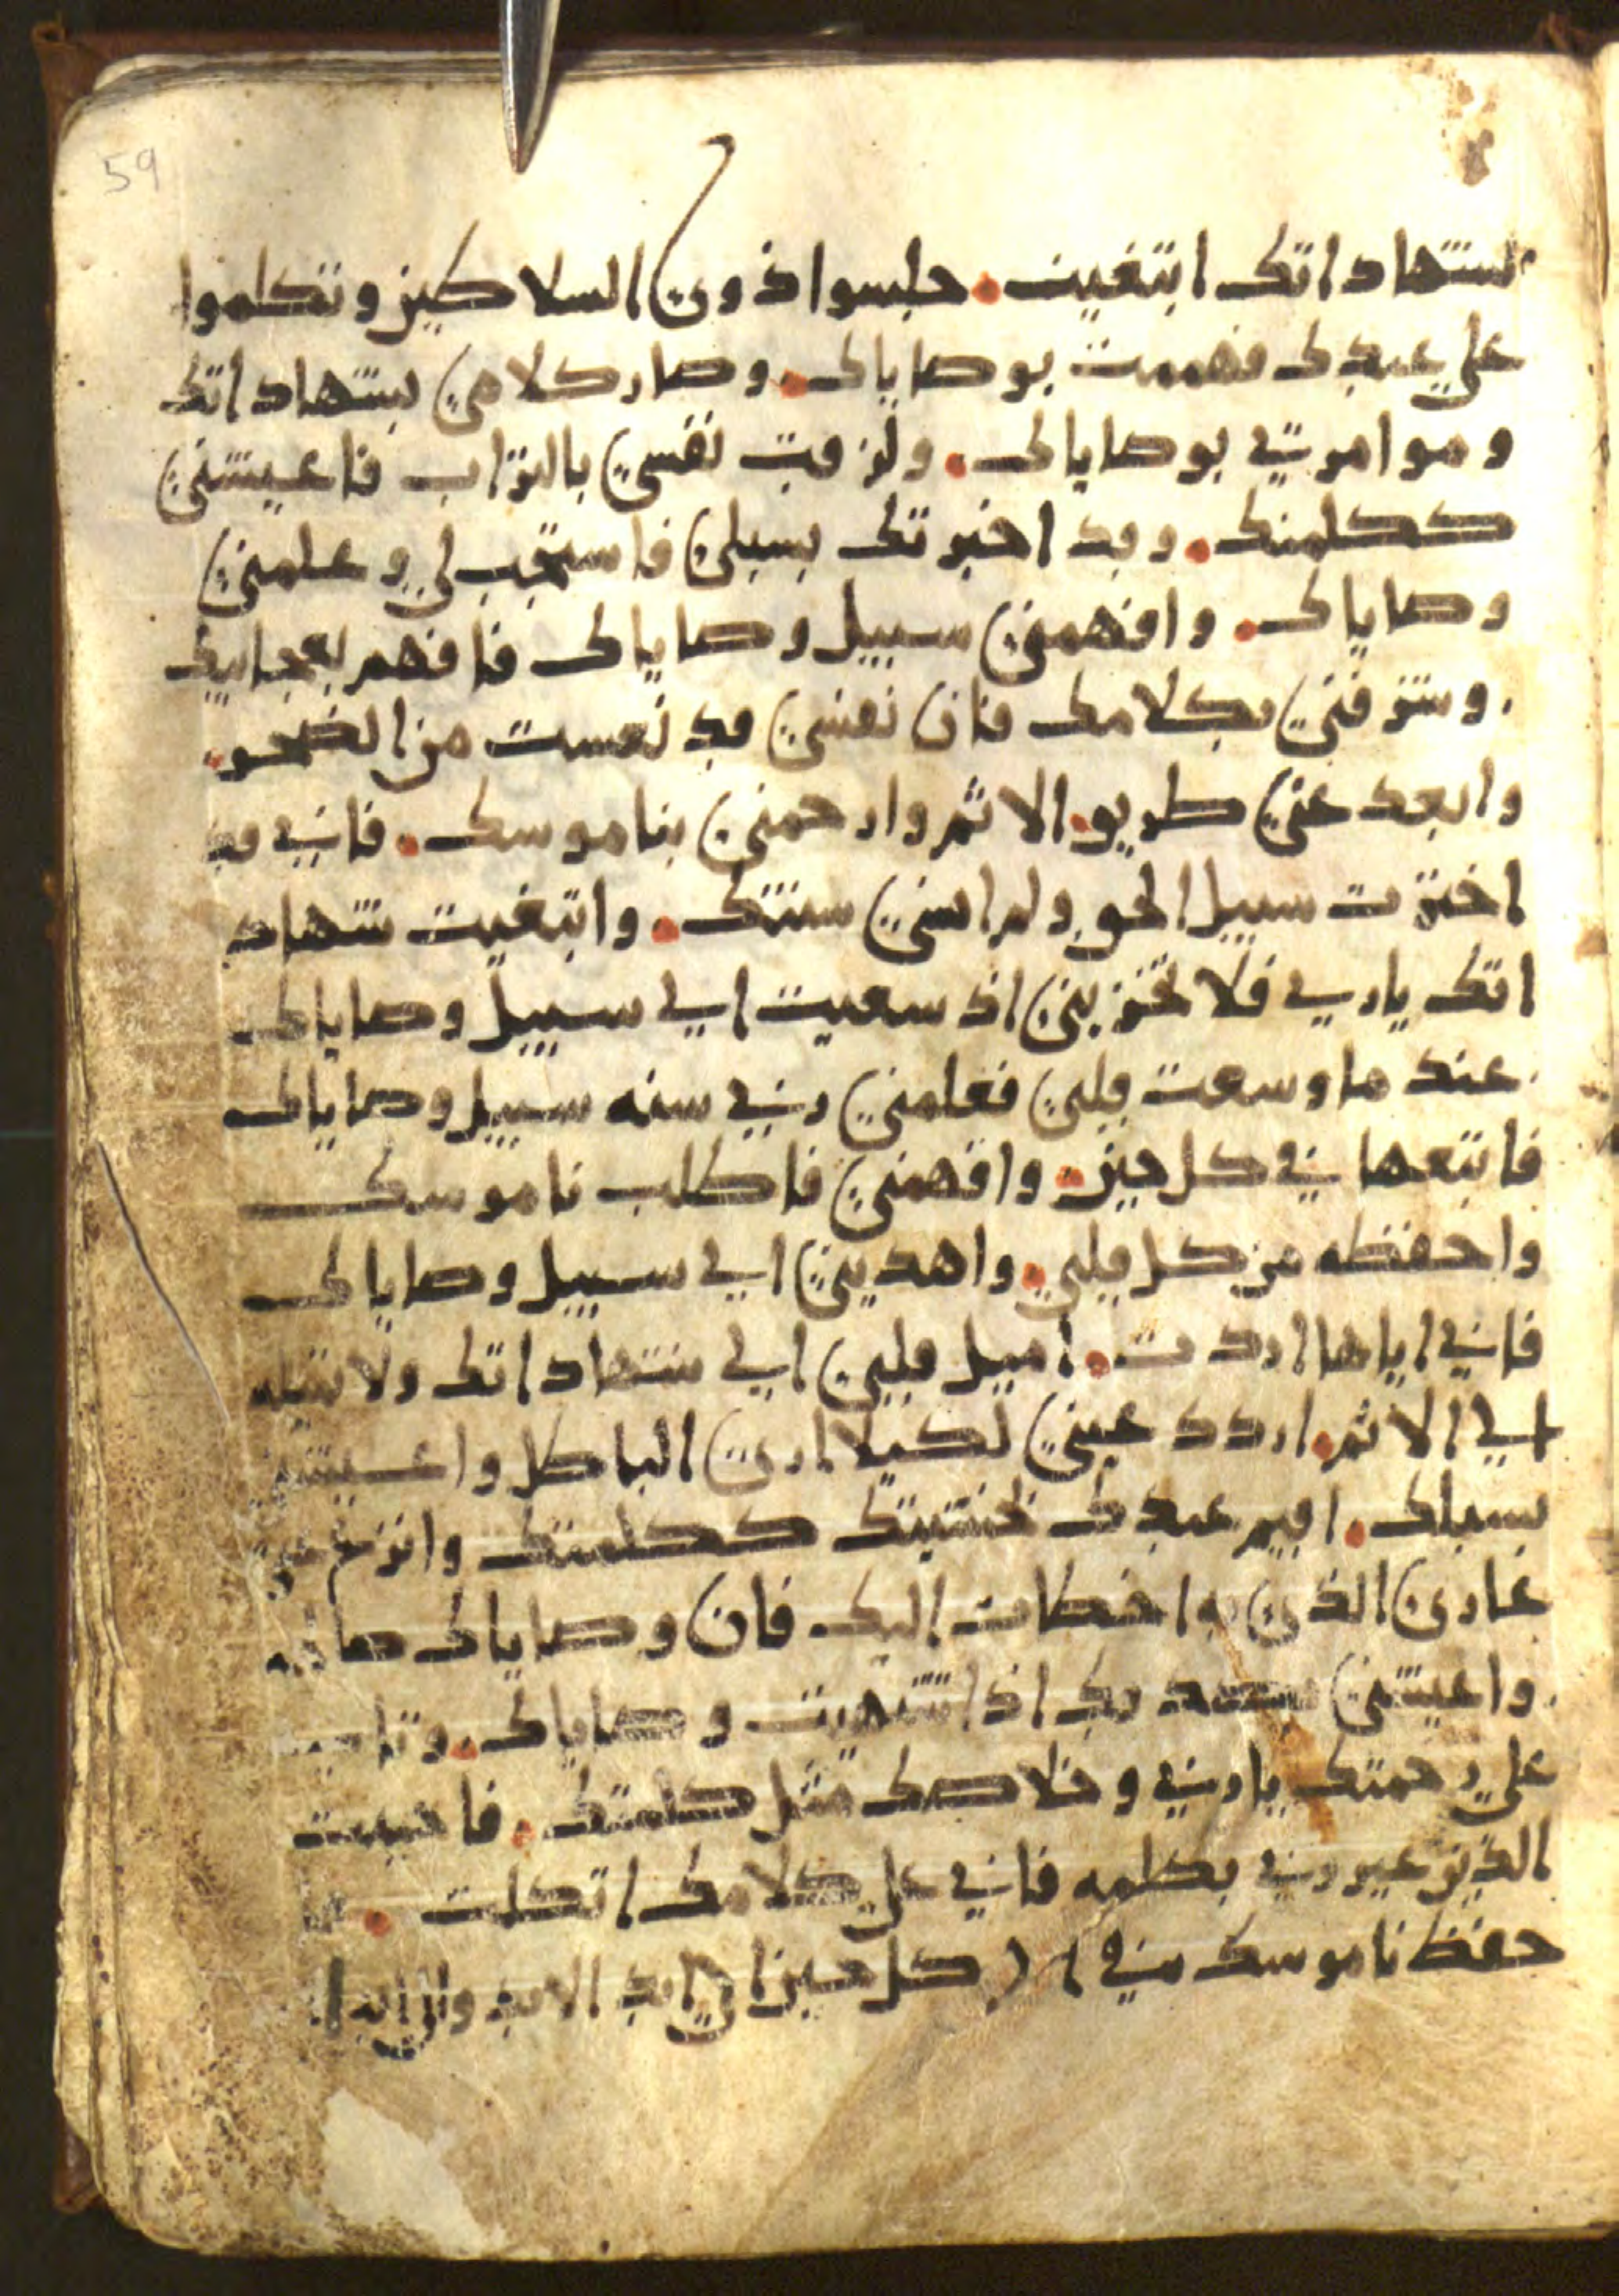 59
لشهاداتك ابتغيت. جلسوا ذوي السلاطين وتكلموا
علي عبدك ففهمت بوصاياك. وصار كلامي بشهاداتك
وموامرتي بوصاياك. ولزقت نفسي بالتراب فاعيشني
ككلمتك. وقد اخبرتك بسبلي فاستجب لي وعلمني
وصاياك. وافهمني سبيل وصاياك فافهم بعجايبك
. وشرفني بكلامك فان نفسي قد نعست من الضجر.
وابعد عني طريق الاثم وارحمني بناموسك. فاني قد
اخترت سبيل الحق ولم انسي سنتك. وابتغيت شهاد
اتك يا ربي فلا تخزيني اذ سعيت الي سبيل وصاياك
. عند ما وسعت قلبي فعلمني ربي سنه سبيل وصاياك
فاتبعها في كل حين. وافهمني فاطلب ناموسك
واحفظه من كل قلبي. واهديني الي سبيل وصاياك
فاني اياها اردت. اميل قلبي الي شهاداتك ولا تتيه
الي الاثم. اردد عيني لكيلا اري الباطل واعيشني
بسبلك. اقيم عبدك خشيتك ككلمتك وانزع عني
عاري الذي به اخطات اليك فان وصاياك صالحه
. واعيشني بصدقك اذ اشتهيت وصاياك. وتاتي
علي رحمتك يا ربي وخلاصك مثل كلمتك. فاجيبت
الذين عيروني بكلمه فاني علي كلامك اتكلت.
حفظ ناموسك مني في كل حين الي ابد الابد والي ابدا.